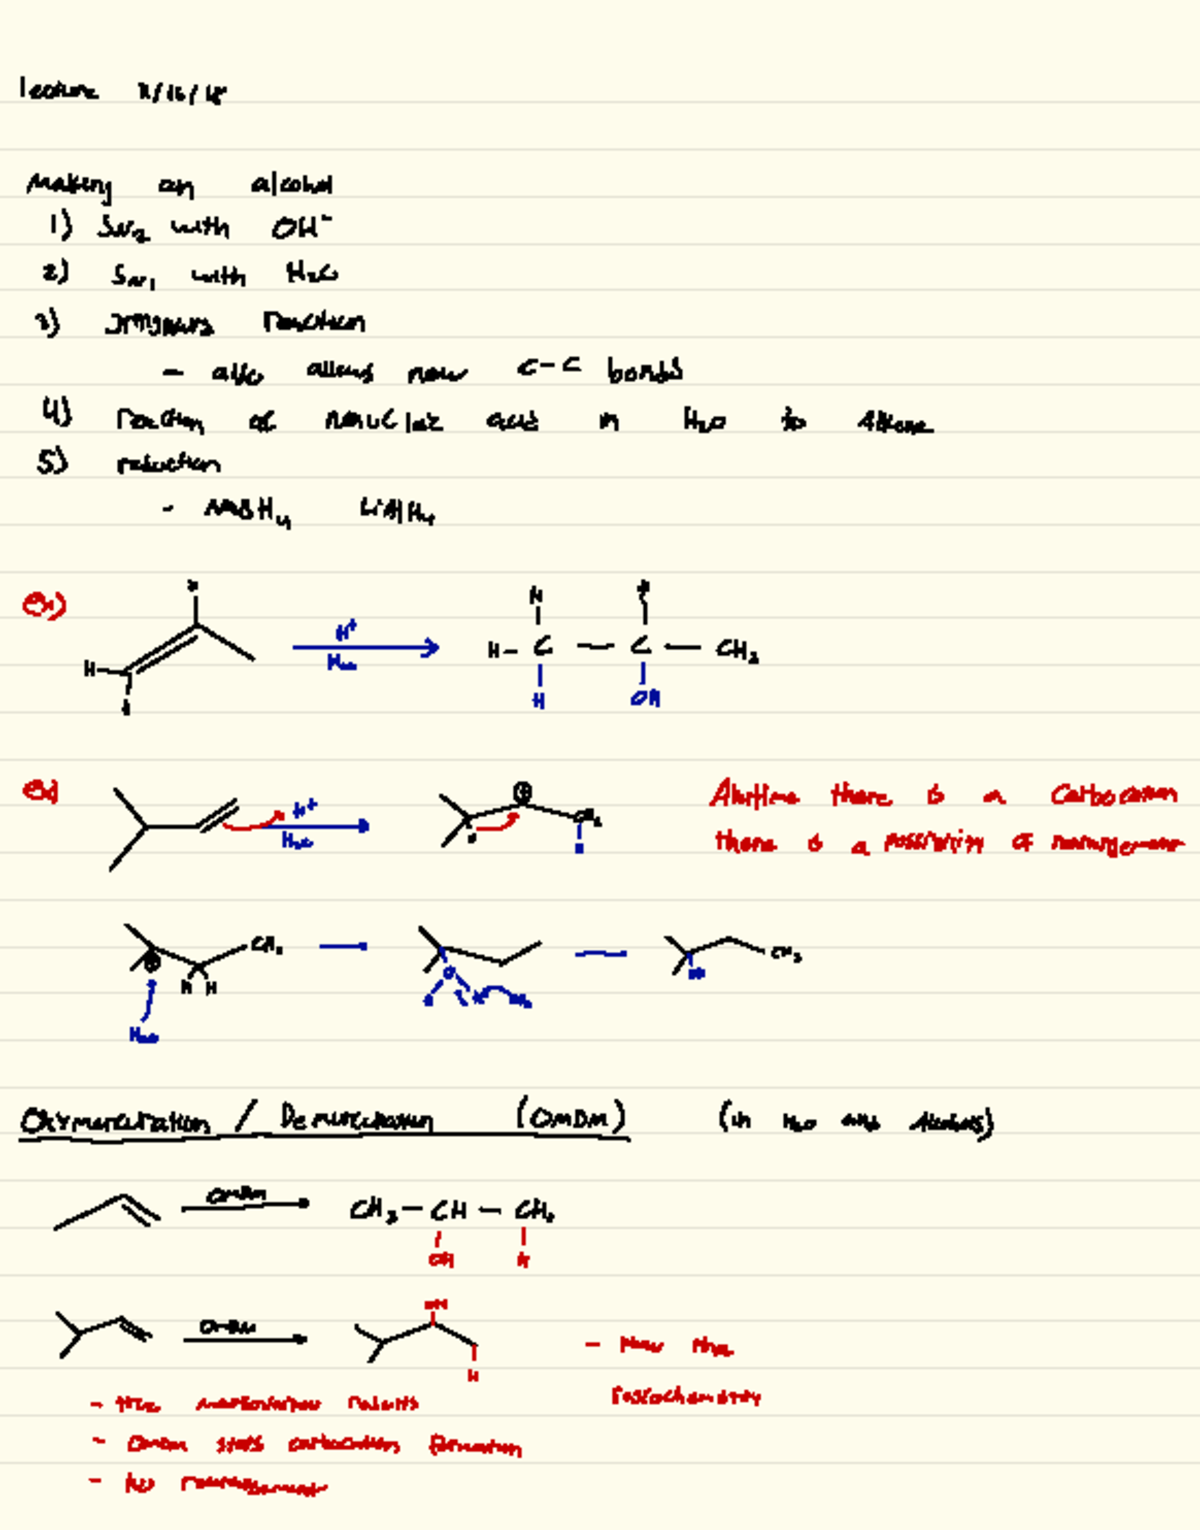 lecture
Making an alcohol
1) SN2 with OH⁻
2) SN1 with H2O
3) reaction
- also allows new C-C bonds
4) reaction of acid in H2O to Alkene
5) reduction
- NaBH4 LiAlH4
H
H+
H2O
H
H - C — C — CH3
H OH
H+
H2O
CH2
Anytime there is a Carbocation
there is a possibility of rearrangement
CH3
H H
H2O
CH3
Oxymercuration / Demercuration (OMDM) (in H2O and Alcohols)
OMDM
CH3 - CH - CH2
OH H
OMDM
OH
H
- Now the
- the markovnikov
- OMDM stops carbocation formation
- no rearrangement